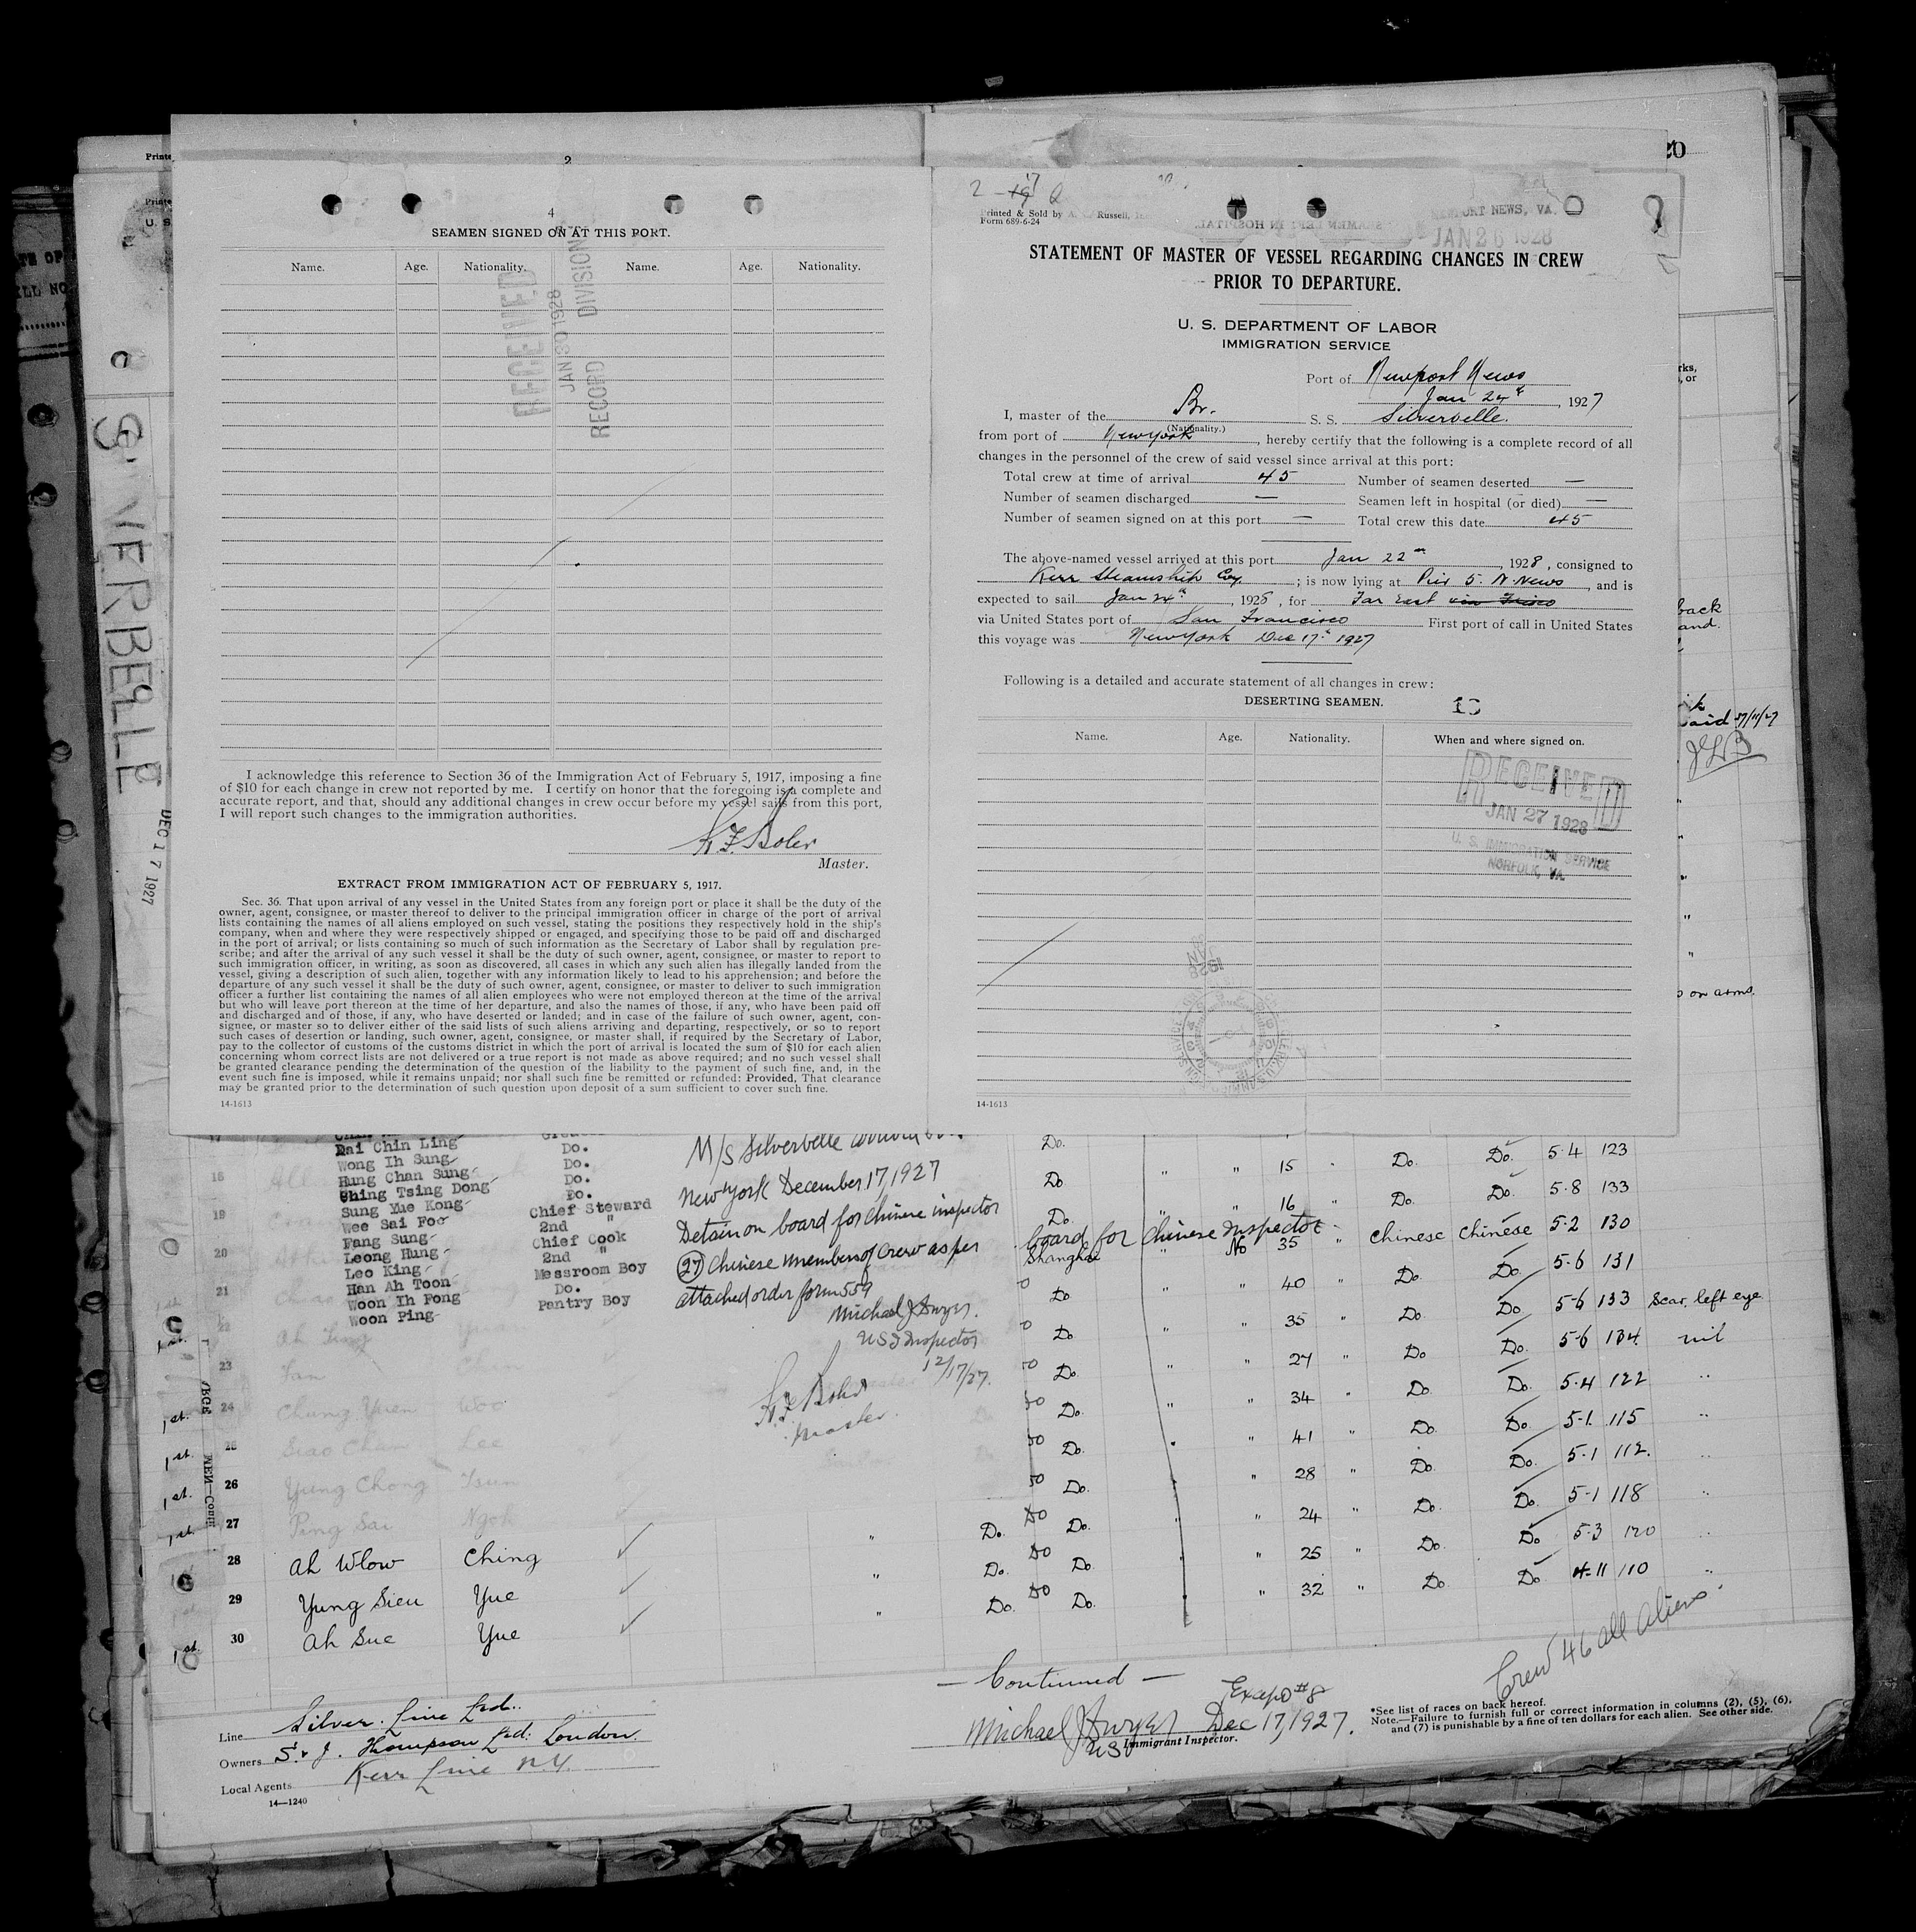 2
4
SEAMEN SIGNED ON AT THIS PORT.
Name. Age. Nationality. Name. Age. Nationality.
RECEIVED
JAN 30 1928
RECORD DIVISION
I acknowledge this reference to Section 36 of the Immigration Act of February 5, 1917, imposing a fine
of $10 for each change in crew not reported by me. I certify on honor that the foregoing is a complete and
accurate report, and that, should any additional changes in crew occur before my vessel sails from this port,
I will report such changes to the immigration authorities.
Master.
EXTRACT FROM IMMIGRATION ACT OF FEBRUARY 5, 1917.
Sec. 36. That upon arrival of any vessel in the United States from any foreign port or place it shall be the duty of the
owner, agent, consignee, or master thereof to deliver to the principal immigration officer in charge of the port of arrival
lists containing the names of all aliens employed on such vessel, stating the positions they respectively hold in the ship's
company, when and where they were respectively shipped or engaged, and specifying those to be paid off and discharged
in the port of arrival; or lists containing so much of such information as the Secretary of Labor shall by regulation pre-
scribe; and after the arrival of any such vessel it shall be the duty of such owner, agent, consignee, or master to report to
such immigration officer, in writing, as soon as discovered, all cases in which any such alien has illegally landed from the
vessel, giving a description of such alien, together with any information likely to lead to his apprehension; and before the
departure of any such vessel it shall be the duty of such owner, agent, consignee, or master to deliver to such immigration
officer a further list containing the names of all alien employees who were not employed thereon at the time of the arrival
but who will leave port thereon at the time of her departure, and also the names of those, if any, who have been paid off
and discharged and of those, if any, who have deserted or landed; and in case of the failure of such owner, agent, con-
signee, or master so to deliver either of the said lists of such aliens arriving and departing, respectively, or so to report
such cases of desertion or landing, such owner, agent, consignee, or master shall, if required by the Secretary of Labor,
pay to the collector of customs of the customs district in which the port of arrival is located the sum of $10 for each alien
concerning whom correct lists are not delivered or a true report is not made as above required; and no such vessel shall
be granted clearance pending the determination of the question of the liability to the payment of such fine, and, in the
event such fine is imposed, while it remains unpaid; nor shall such fine be remitted or refunded: Provided, That clearance
may be granted prior to the determination of such question upon deposit of a sum sufficient to cover such fine.
14-1613
Printed & Sold by
Form 689-6-24
NEWPORT NEWS, VA.
JAN 26 1928
STATEMENT OF MASTER OF VESSEL REGARDING CHANGES IN CREW
PRIOR TO DEPARTURE.
U. S. DEPARTMENT OF LABOR
IMMIGRATION SERVICE
Port of Newport News
Jan 24th, 1927
I, master of the Br. S. S. Silverbelle.
(Nationality.)
from port of New York, hereby certify that the following is a complete record of all
changes in the personnel of the crew of said vessel since arrival at this port:
Total crew at time of arrival 45 Number of seamen deserted —
Number of seamen discharged — Seamen left in hospital (or died) —
Number of seamen signed on at this port — Total crew this date 45
The above-named vessel arrived at this port Jan 22nd, 1928, consigned to
Kerr Steamship Coy; is now lying at Pier 5. N. News, and is
expected to sail Jan 24th, 1928, for Far East via Frisco
via United States port of San Francisco First port of call in United States
this voyage was New York Dec 17th 1927
Following is a detailed and accurate statement of all changes in crew:
DESERTING SEAMEN.
Name. Age. Nationality. When and where signed on.
RECEIVED
JAN 27 1928
U. S. IMMIGRATION SERVICE
NORFOLK, VA.
14-1613
SILVERBELLE
DEC 17 1927
Dai Chin Ling Do.
Wong Ih Sung Do.
Hung Chan Sung Do.
Ching Tsing Dong Do.
Sung Yue Kong Chief Steward
Wee Sai Foo 2nd "
Fang Sung Chief Cook
Leong Hung 2nd "
Leo King Messroom Boy
Han Ah Toon Do.
Woon Ih Fong Pantry Boy
Woon Ping
M/S Silverbelle
New York December 17, 1927
Detain on board for Chinese inspector
(27) Chinese members of crew as per
attached order form 559
Michael J Dwyer.
US I Inspector
12/17/27.
Master.
Do. " " 15 " Do. Do. 5-4 123
Do " " 16 " Do. Do. 5-8 133
Do. board for Chinese Inspector
Shanghai " No 35 " Chinese Chinese 5-2 130
Do " " 40 " Do. Do. 5-6 131
Do " " 35 " Do. Do. 5-6 133 Scar, left eye
Do. " " 27 " Do Do. 5-6 134. nil
Do. " " 34 " Do. Do. 5-4 122 "
Do. " " 41 " Do. Do. 5-1. 115 "
Do. " 28 " Do. Do. 5-1 112. "
Do. " 24 " Do. Do. 5-1 118 "
Do. " 25 " Do. Do. 5-3 120 "
Do. " 32 " Do. Do. 4-11 110 "
18
19
20
21
22 Ah
23 Yan
24 Chung Yuen Woo
25 Siao Chun Lee
26 Yung Chong Tsun
27 Ping Sai Ngoh
28 Ah Wlow Ching " Do.
29 Yung Sieu Yue " Do.
30 Ah Suc Yue " Do.
— Continued —
Crew 46 all Aliens
Line Silver Line Ltd.
Owners S. & J. Thompson Ltd. London.
Local Agents Kerr Line N.Y.
14—1240
Except #8
Michael J Dwyer Dec 17, 1927.
Immigrant Inspector.
*See list of races on back hereof.
Note.—Failure to furnish full or correct information in columns (2), (5), (6),
and (7) is punishable by a fine of ten dollars for each alien. See other side.